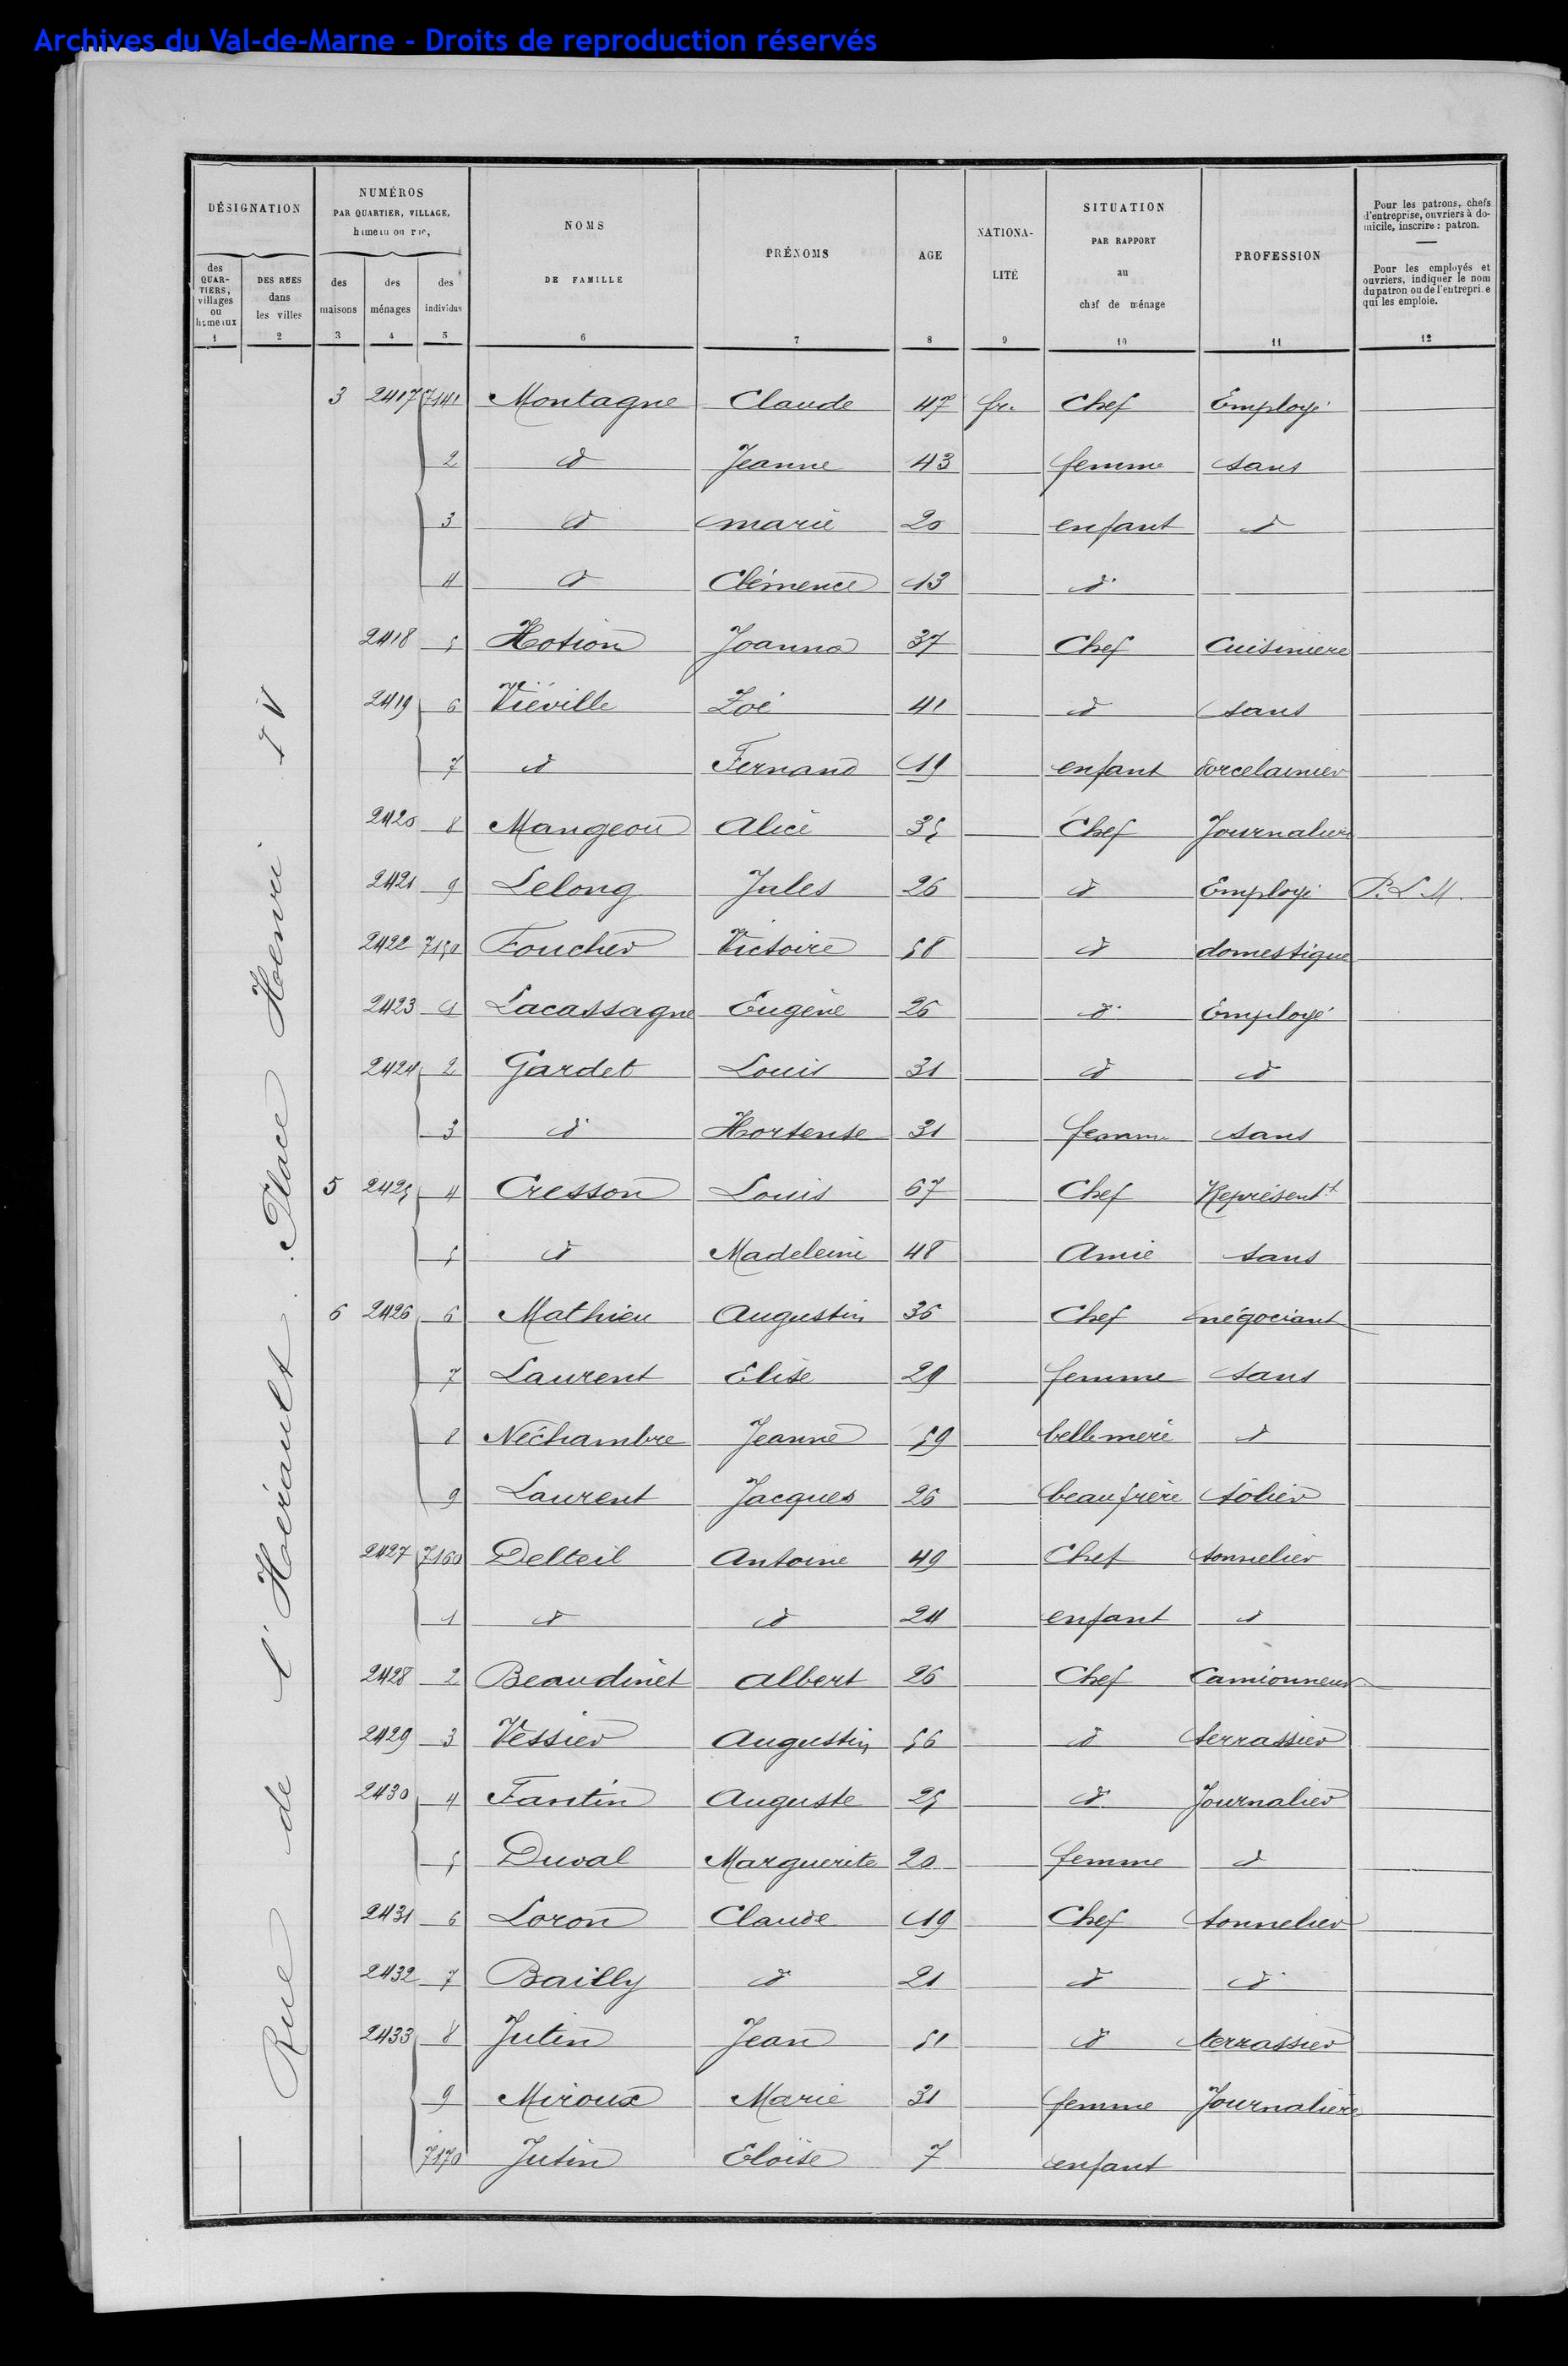 Archives du Val-de-Marne - Droits de reproduction réservés
DÉSIGNATION
des QUARTIERS, villages ou hameaux 1
DES RUES dans les villes 2
NUMÉROS PAR QUARTIER, VILLAGE, hameau ou rue,
des maisons 3
des ménages 4
des individus 5
NOMS DE FAMILLE 6
PRÉNOMS 7
AGE 8
NATIONALITÉ 9
SITUATION PAR RAPPORT au chef de ménage 10
PROFESSION 11
Pour les patrons, chefs d'entreprise, ouvriers à domicile, inscrire : patron.
Pour les employés et ouvriers, indiquer le nom du patron ou de l'entreprise qui les emploie. 12
Rue de l'Hérault. Place Henri IV
3 2417 7141 Montagne Claude 47 fr. Chef Employé
2 d° Jeanne 43 femme sans
3 d° marie 20 enfant d°
4 d° Clémence 13 d°
2418 5 Hotion Joanna 37 Chef Cuisiniere
2419 6 Viéville Zoé 41 d° sans
7 d° Fernand 19 enfant porcelainier
2420 8 Mangeon Alice 35 Chef Journalière
2421 9 Lelong Jules 26 d° Employé P.L.M.
2422 7150 Foucher Victoire 58 d° domestique
2423 1 Lacassagne Eugène 26 d° Employé
2424 2 Gardet Louis 31 d° d°
3 d° Hortense 31 femme sans
5 2425 4 Cresson Louis 67 Chef Représentt
5 d° Madeleine 48 Amie sans
6 2426 6 Mathieu Augustin 36 Chef négociant
7 Laurent Elise 29 femme sans
8 Néchambre Jeanne 59 belle mère d°
9 Laurent Jacques 26 beau frère tôlier
2427 7160 Delteil Antoine 49 Chef tonnelier
1 d° d° 24 enfant d°
2428 2 Beaudinet Albert 26 Chef Camionneur
2429 3 Vessier Augustin 56 d° terrassier
2430 4 Fantin Auguste 25 d° Journalier
5 Duval Marguerite 20 femme d°
2431 6 Loron Claude 19 Chef tonnelier
2432 7 Bailly d° 21 d° d°
2433 8 Jutin Jean 51 d° terrassier
9 Miroux Marie 31 femme Journalière
7170 Jutin Eloïse 7 enfant